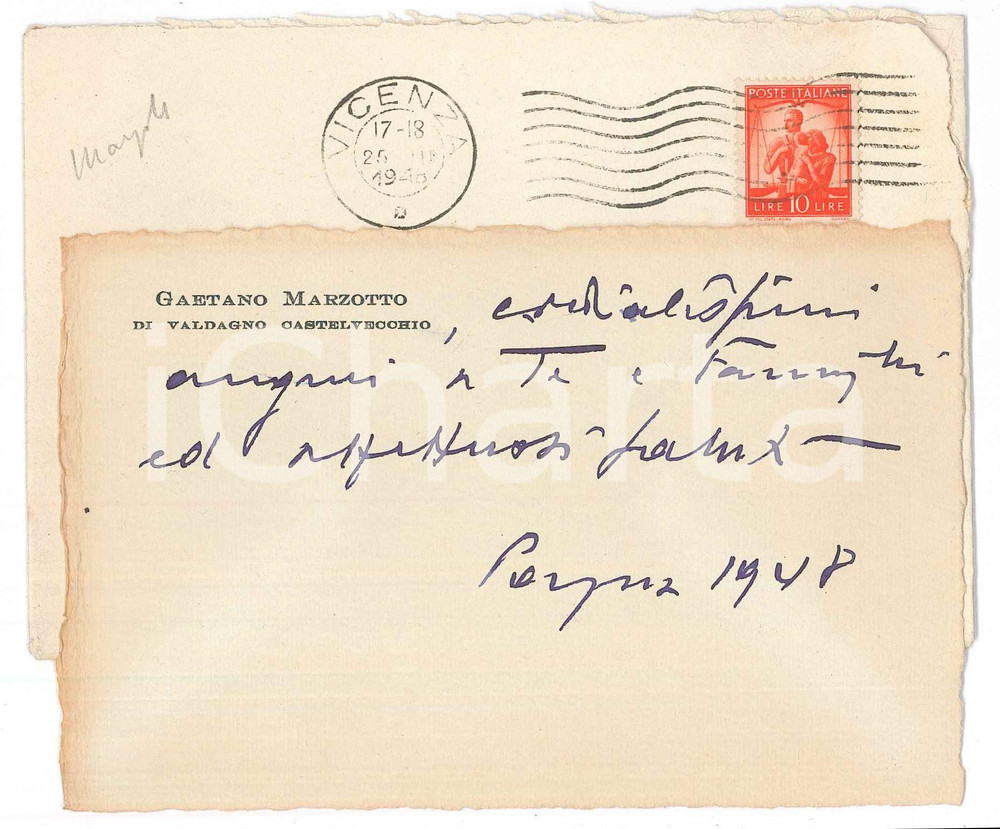 Marzotto
VICENZA
17-18
25
1948
POSTE ITALIANE
LIRE 10 LIRE
GAETANO MARZOTTO
DI VALDAGNO CASTELVECCHIO
, cordialissimi
auguri a Te e Famiglia
ed affettuosi saluti
Pasqua 1948
iCharta